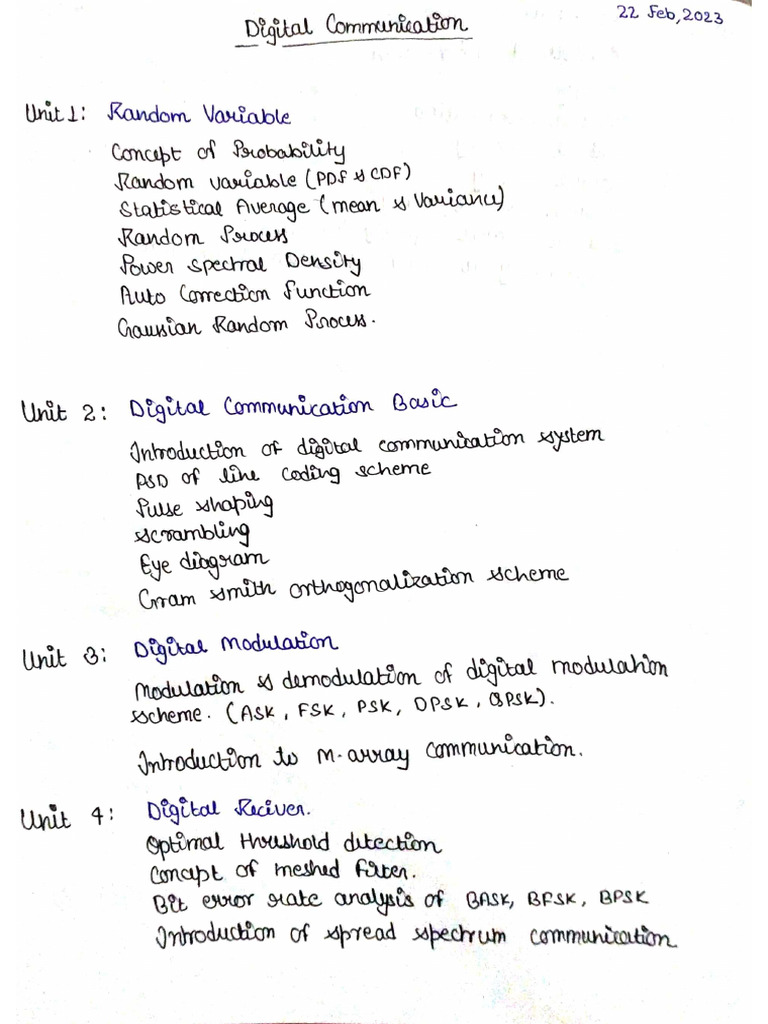 Digital Communication
22 Feb, 2023
Unit 1: Random Variable
Concept of Probability
Random variable (PDF & CDF)
Statistical Average (mean & Variance)
Random Process
Power Spectral Density
Auto Correction Function
Gausian Random Process.
Unit 2: Digital Communication Basic
Introduction of digital communication system
PSD of line coding scheme
Pulse shaping
scrambling
Eye diagram
Gram smith orthogonalization scheme
Unit 3: Digital Modulation
Modulation & demodulation of digital modulation
scheme. (ASK, FSK, PSK, DPSK, QPSK).
Introduction to M-array communication.
Unit 4: Digital Reciver.
Optimal threshold detection
Concept of meshed filter.
Bit error rate analysis of BASK, BFSK, BPSK
Introduction of spread spectrum communication